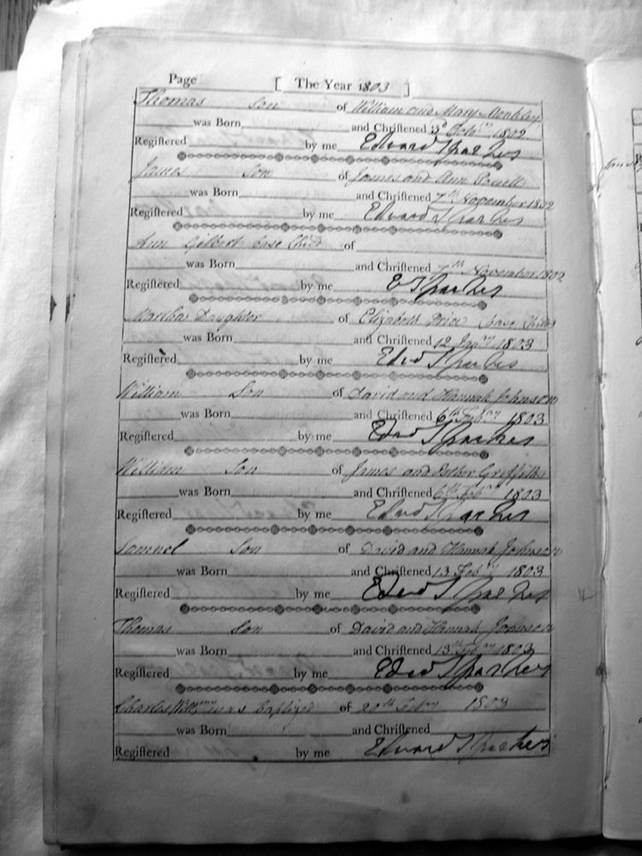 Page [ The Year 1803 ]
Thomas Son of William and Mary
was Born and Chriſtened 3d Octr 1802
Regiſtered by me Edward Sparkes
James Son of James and Ann Powell
was Born and Chriſtened 7th November 1802
Regiſtered by me Edward Sparkes
Ann Gilbert base Child of
was Born and Chriſtened 7th November 1802
Regiſtered by me E Sparkes
Martha Daughter of Elizabeth Price base Child
was Born and Chriſtened 12 Jany 1803
Regiſtered by me Edwd Sparkes
William Son of David and Hannah Johnson
was Born and Chriſtened 6th Feby 1803
Regiſtered by me Edwd Sparkes
William Son of James and Esther Griffiths
was Born and Chriſtened 6th Feby 1803
Regiſtered by me Edwd Sparkes
Samuel Son of David and Hannah Johnson
was Born and Chriſtened 13 Feby 1803
Regiſtered by me Edwd Sparkes
Thomas Son of David and Hannah Johnson
was Born and Chriſtened 13th Feby 1803
Regiſtered by me Edwd Sparkes
Charles was baptized of 20th Feby 1803
was Born and Chriſtened
Regiſtered by me Edward Sparkes